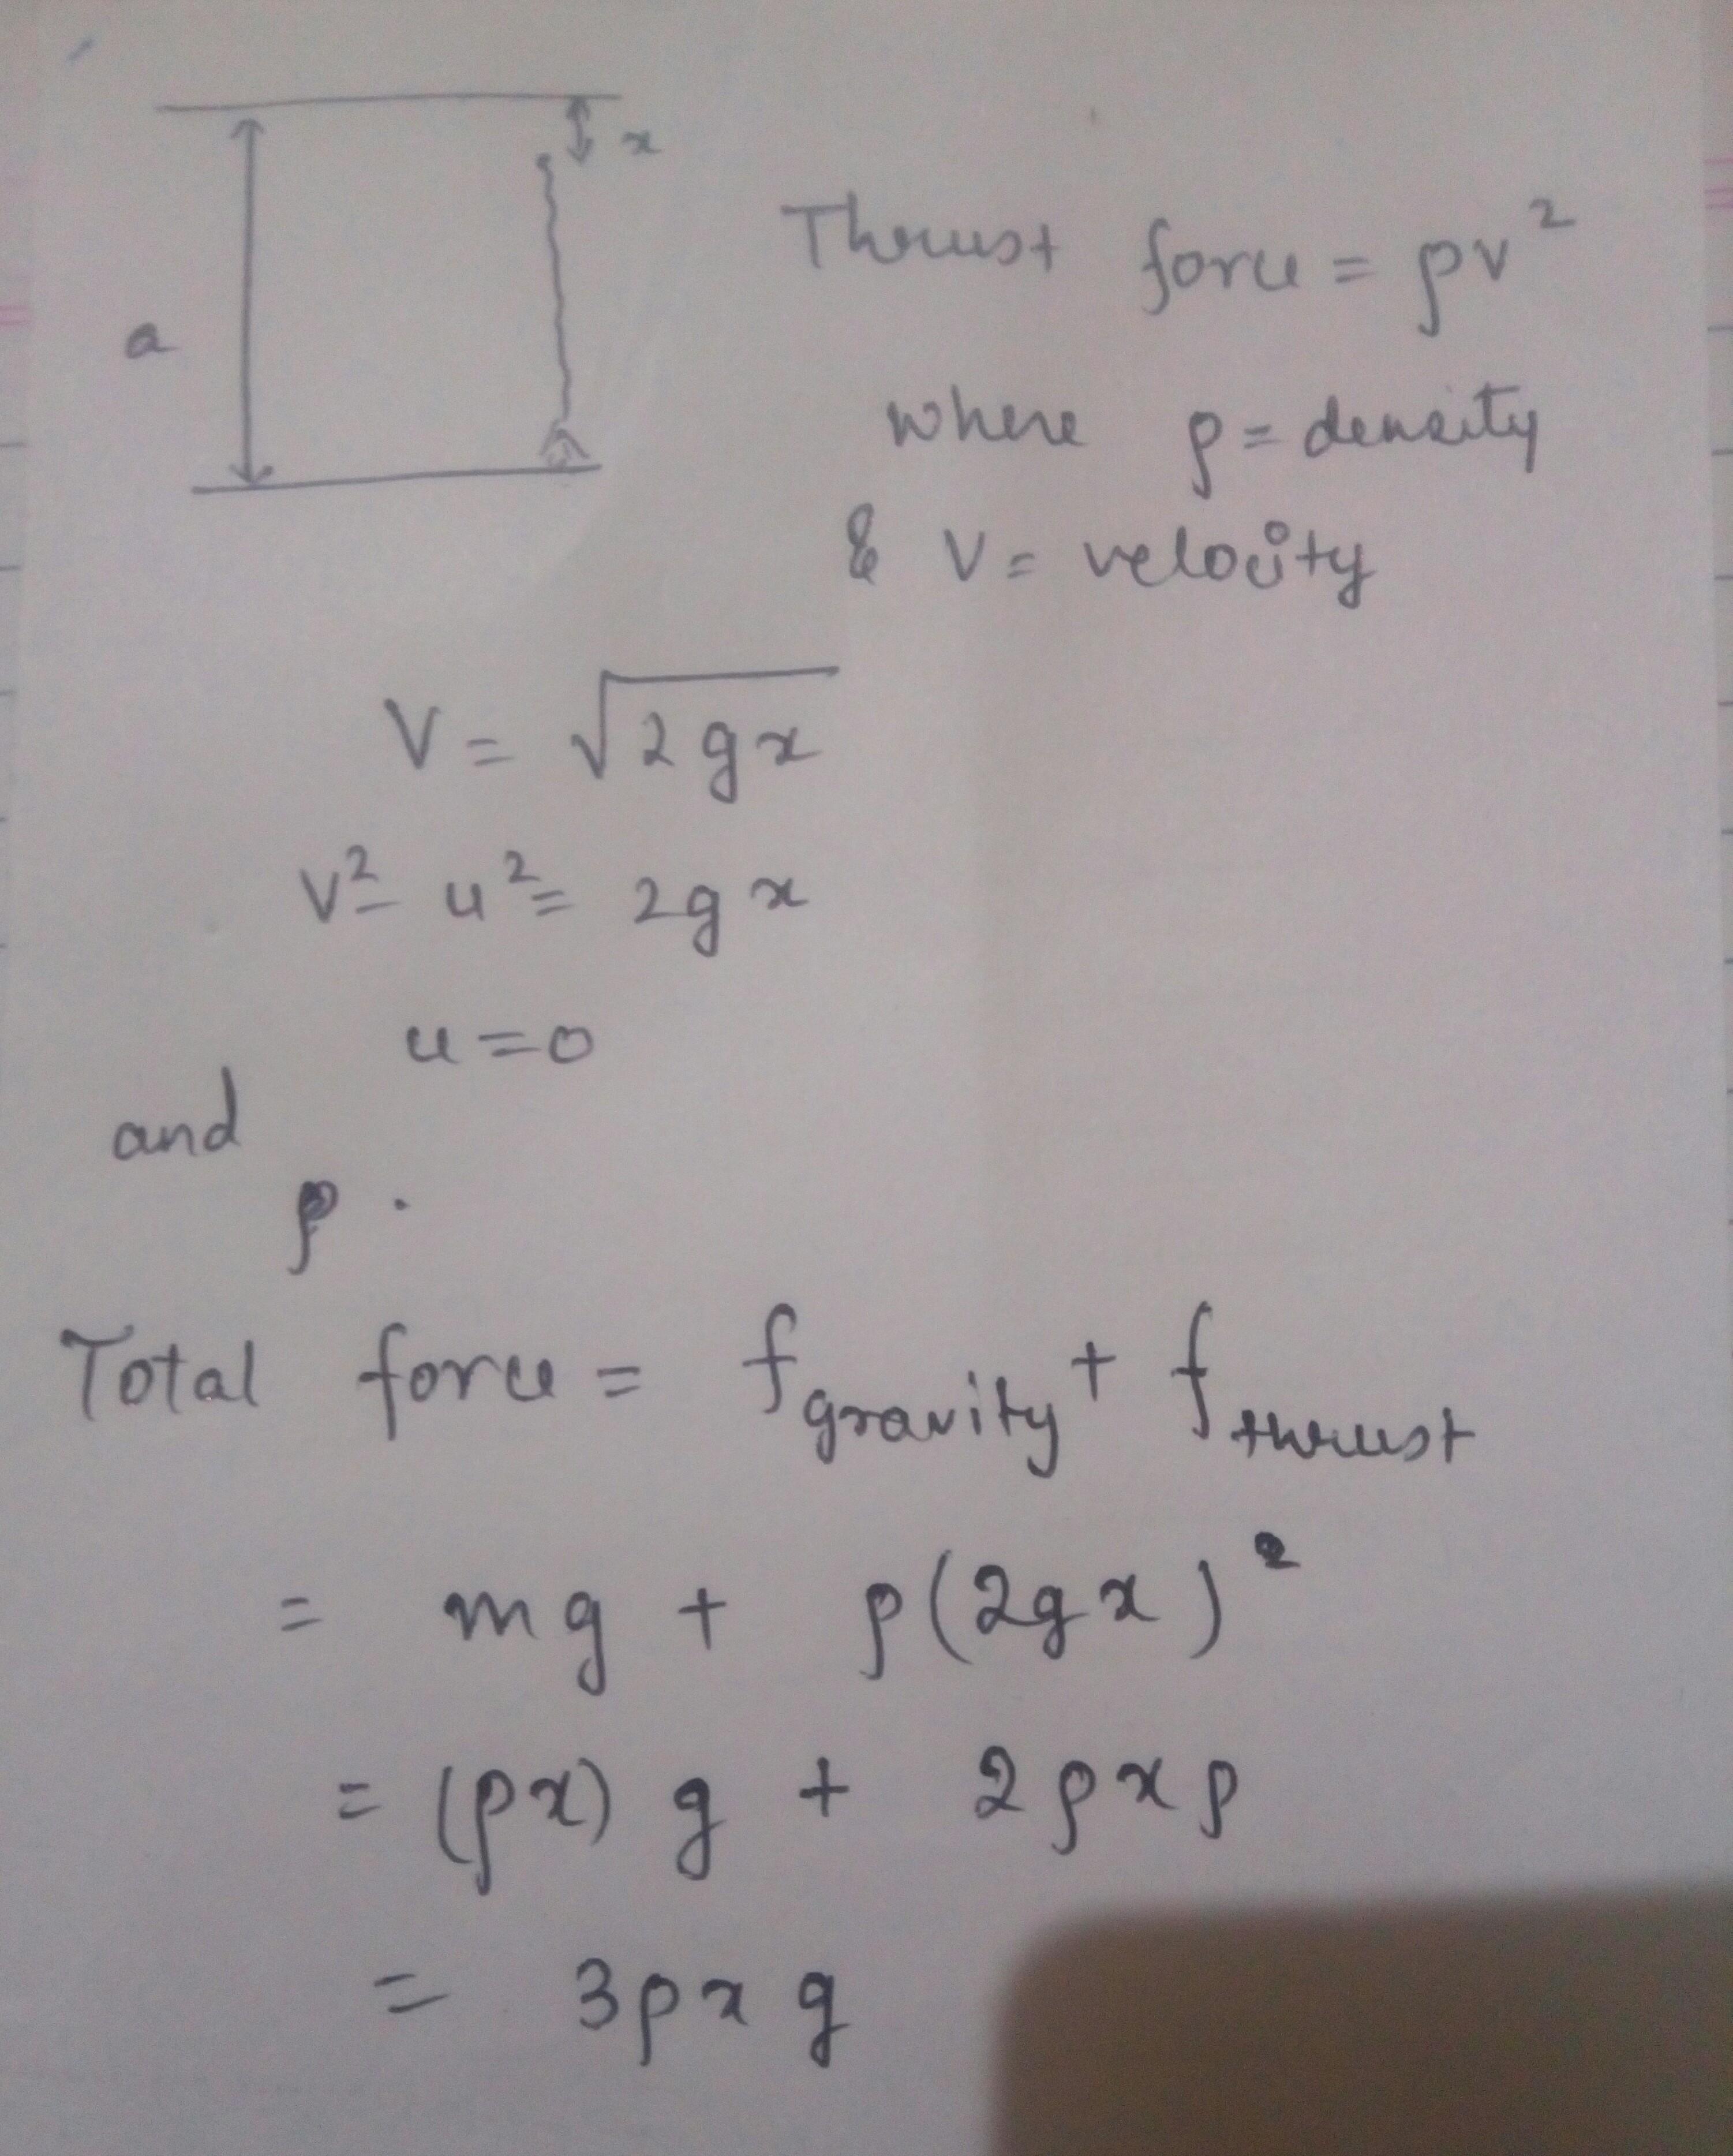 x
a
Thrust force = ρv²
where ρ = density
& v = velocity
V = √2gx
v² - u² = 2gx
u = 0
and
ρ .
Total force = f gravity + f thrust
= mg + ρ(2gx)²
= (ρx) g + 2ρxρ
= 3ρxg